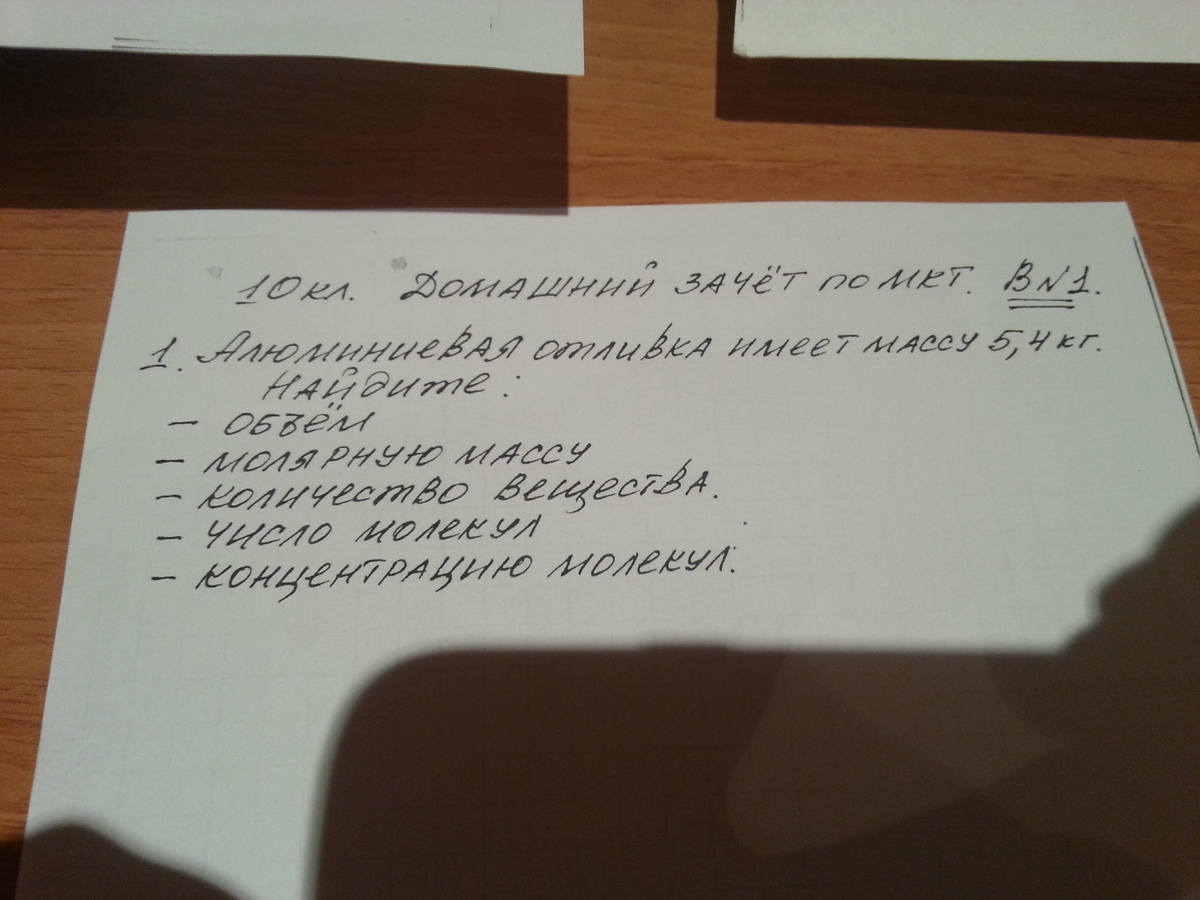 10 кл. Домашний зачёт по МКТ. В№1.
1. Алюминиевая отливка имеет массу 5,4 кг.
Найдите:
- объём
- молярную массу
- количество вещества.
- число молекул
- концентрацию молекул.